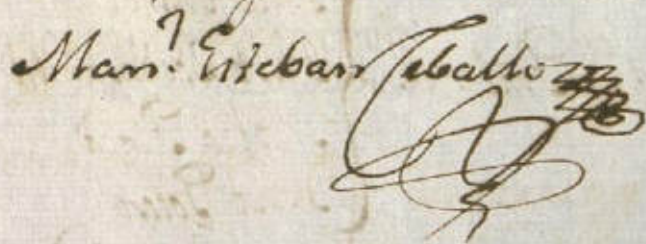 Man.l Esteban Ceballos